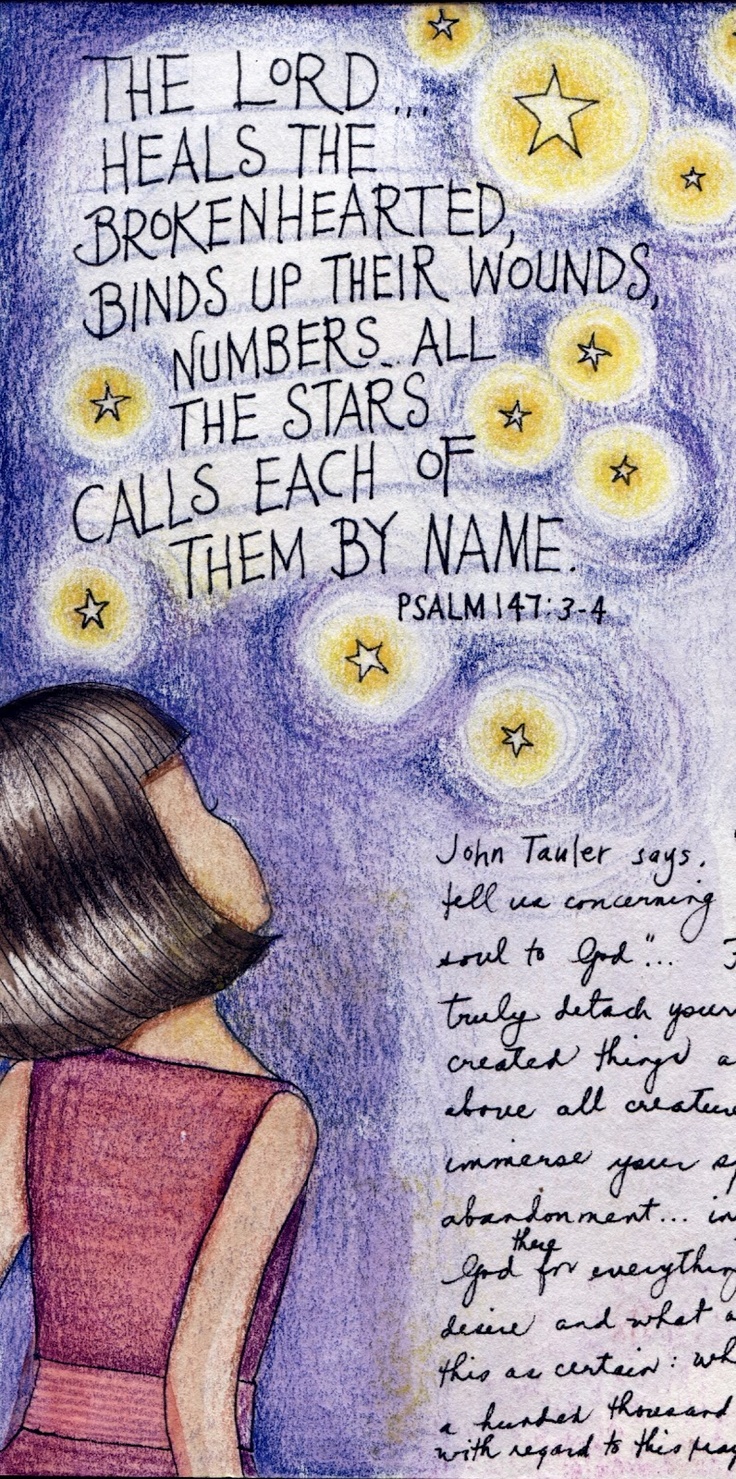 THE LORD...
HEALS THE
BROKENHEARTED,
BINDS UP THEIR WOUNDS,
NUMBERS ALL
THE STARS
CALLS EACH OF
THEM BY NAME.
PSALM 147:3-4
John Tauler says,
tell us concerning
soul to God"...
truly detach your
created things
above all creature
immerse your
abandonment... in
there
God for everything
desire and what
this as certain: wh
a hundred thousand
with regard to this